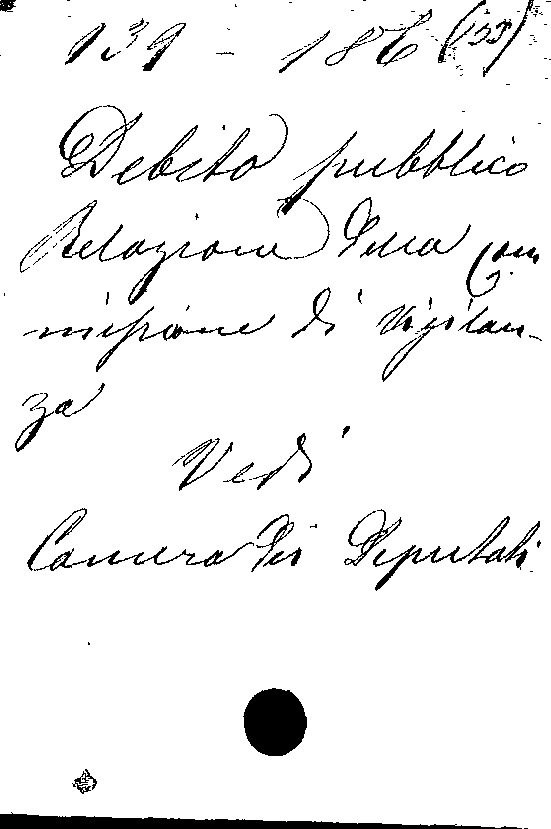 139 - 186 (133)
Debito pubblico
Relazione della Com
missione di Vigilan-
za
Vedi
Camera dei Deputati